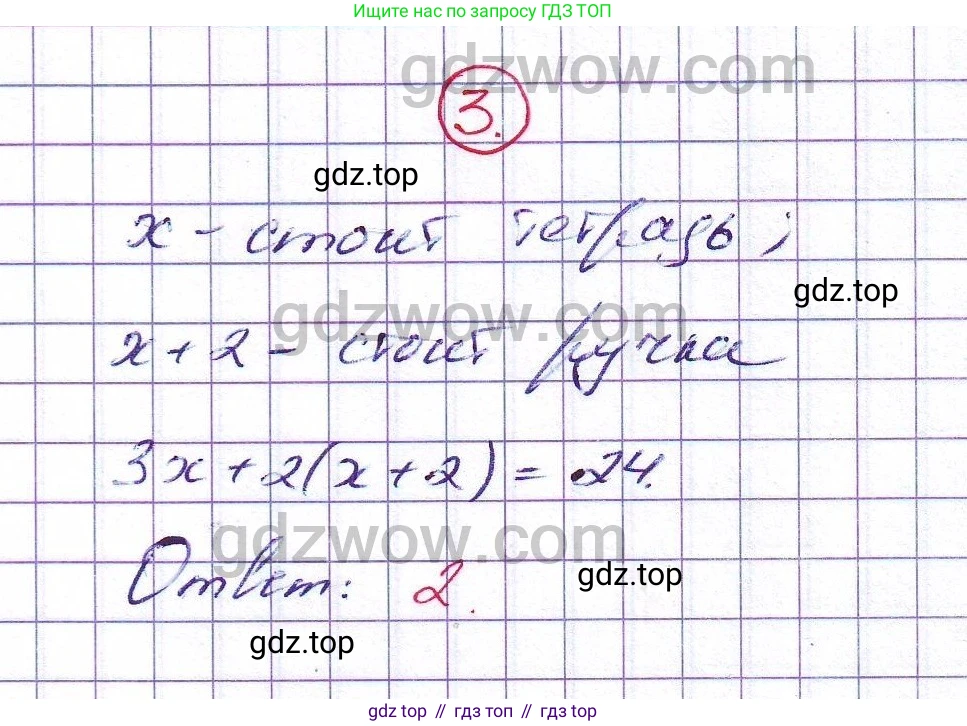 Ищите нас по запросу ГДЗ ТОП
gdzwow.com
3.
gdz.top
x - стоит тетрадь;
gdz.top
gdzwow.com
x + 2 - стоит ручка
3x + 2(x + 2) = 24.
gdzwow.com
Ответ: 2.
gdz.top
gdz.top
gdz top // гдз топ // gdz top